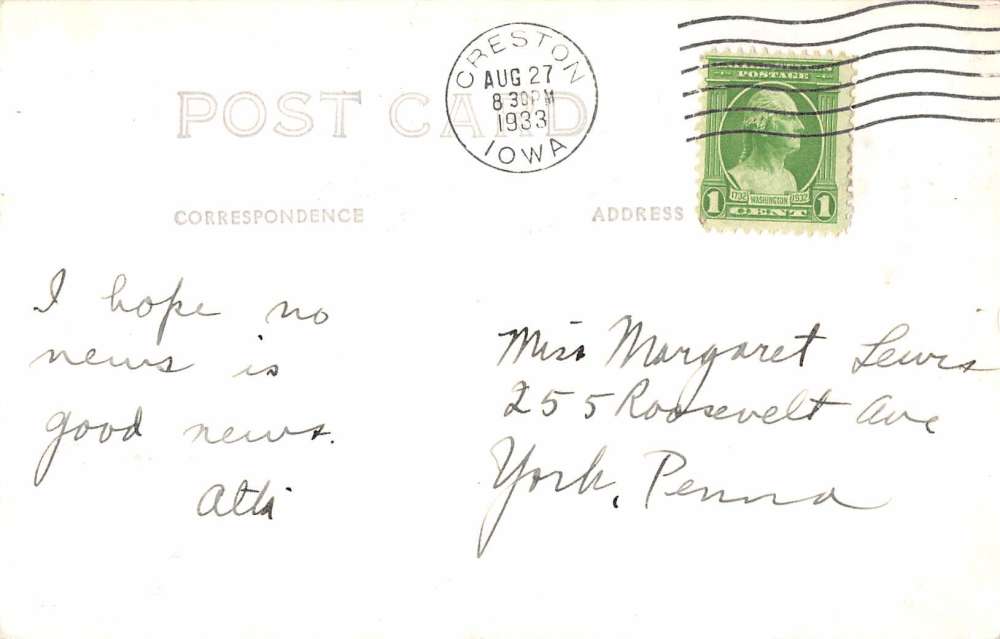 POST CARD
CRESTON
AUG 27
8 30PM
1933
IOWA
POSTAGE
1732 WASHINGTON 1932
1 CENT 1
CORRESPONDENCE
ADDRESS
I hope no
news is
good news.
Miss Margaret Lewis
255 Roosevelt Ave
York, Penna